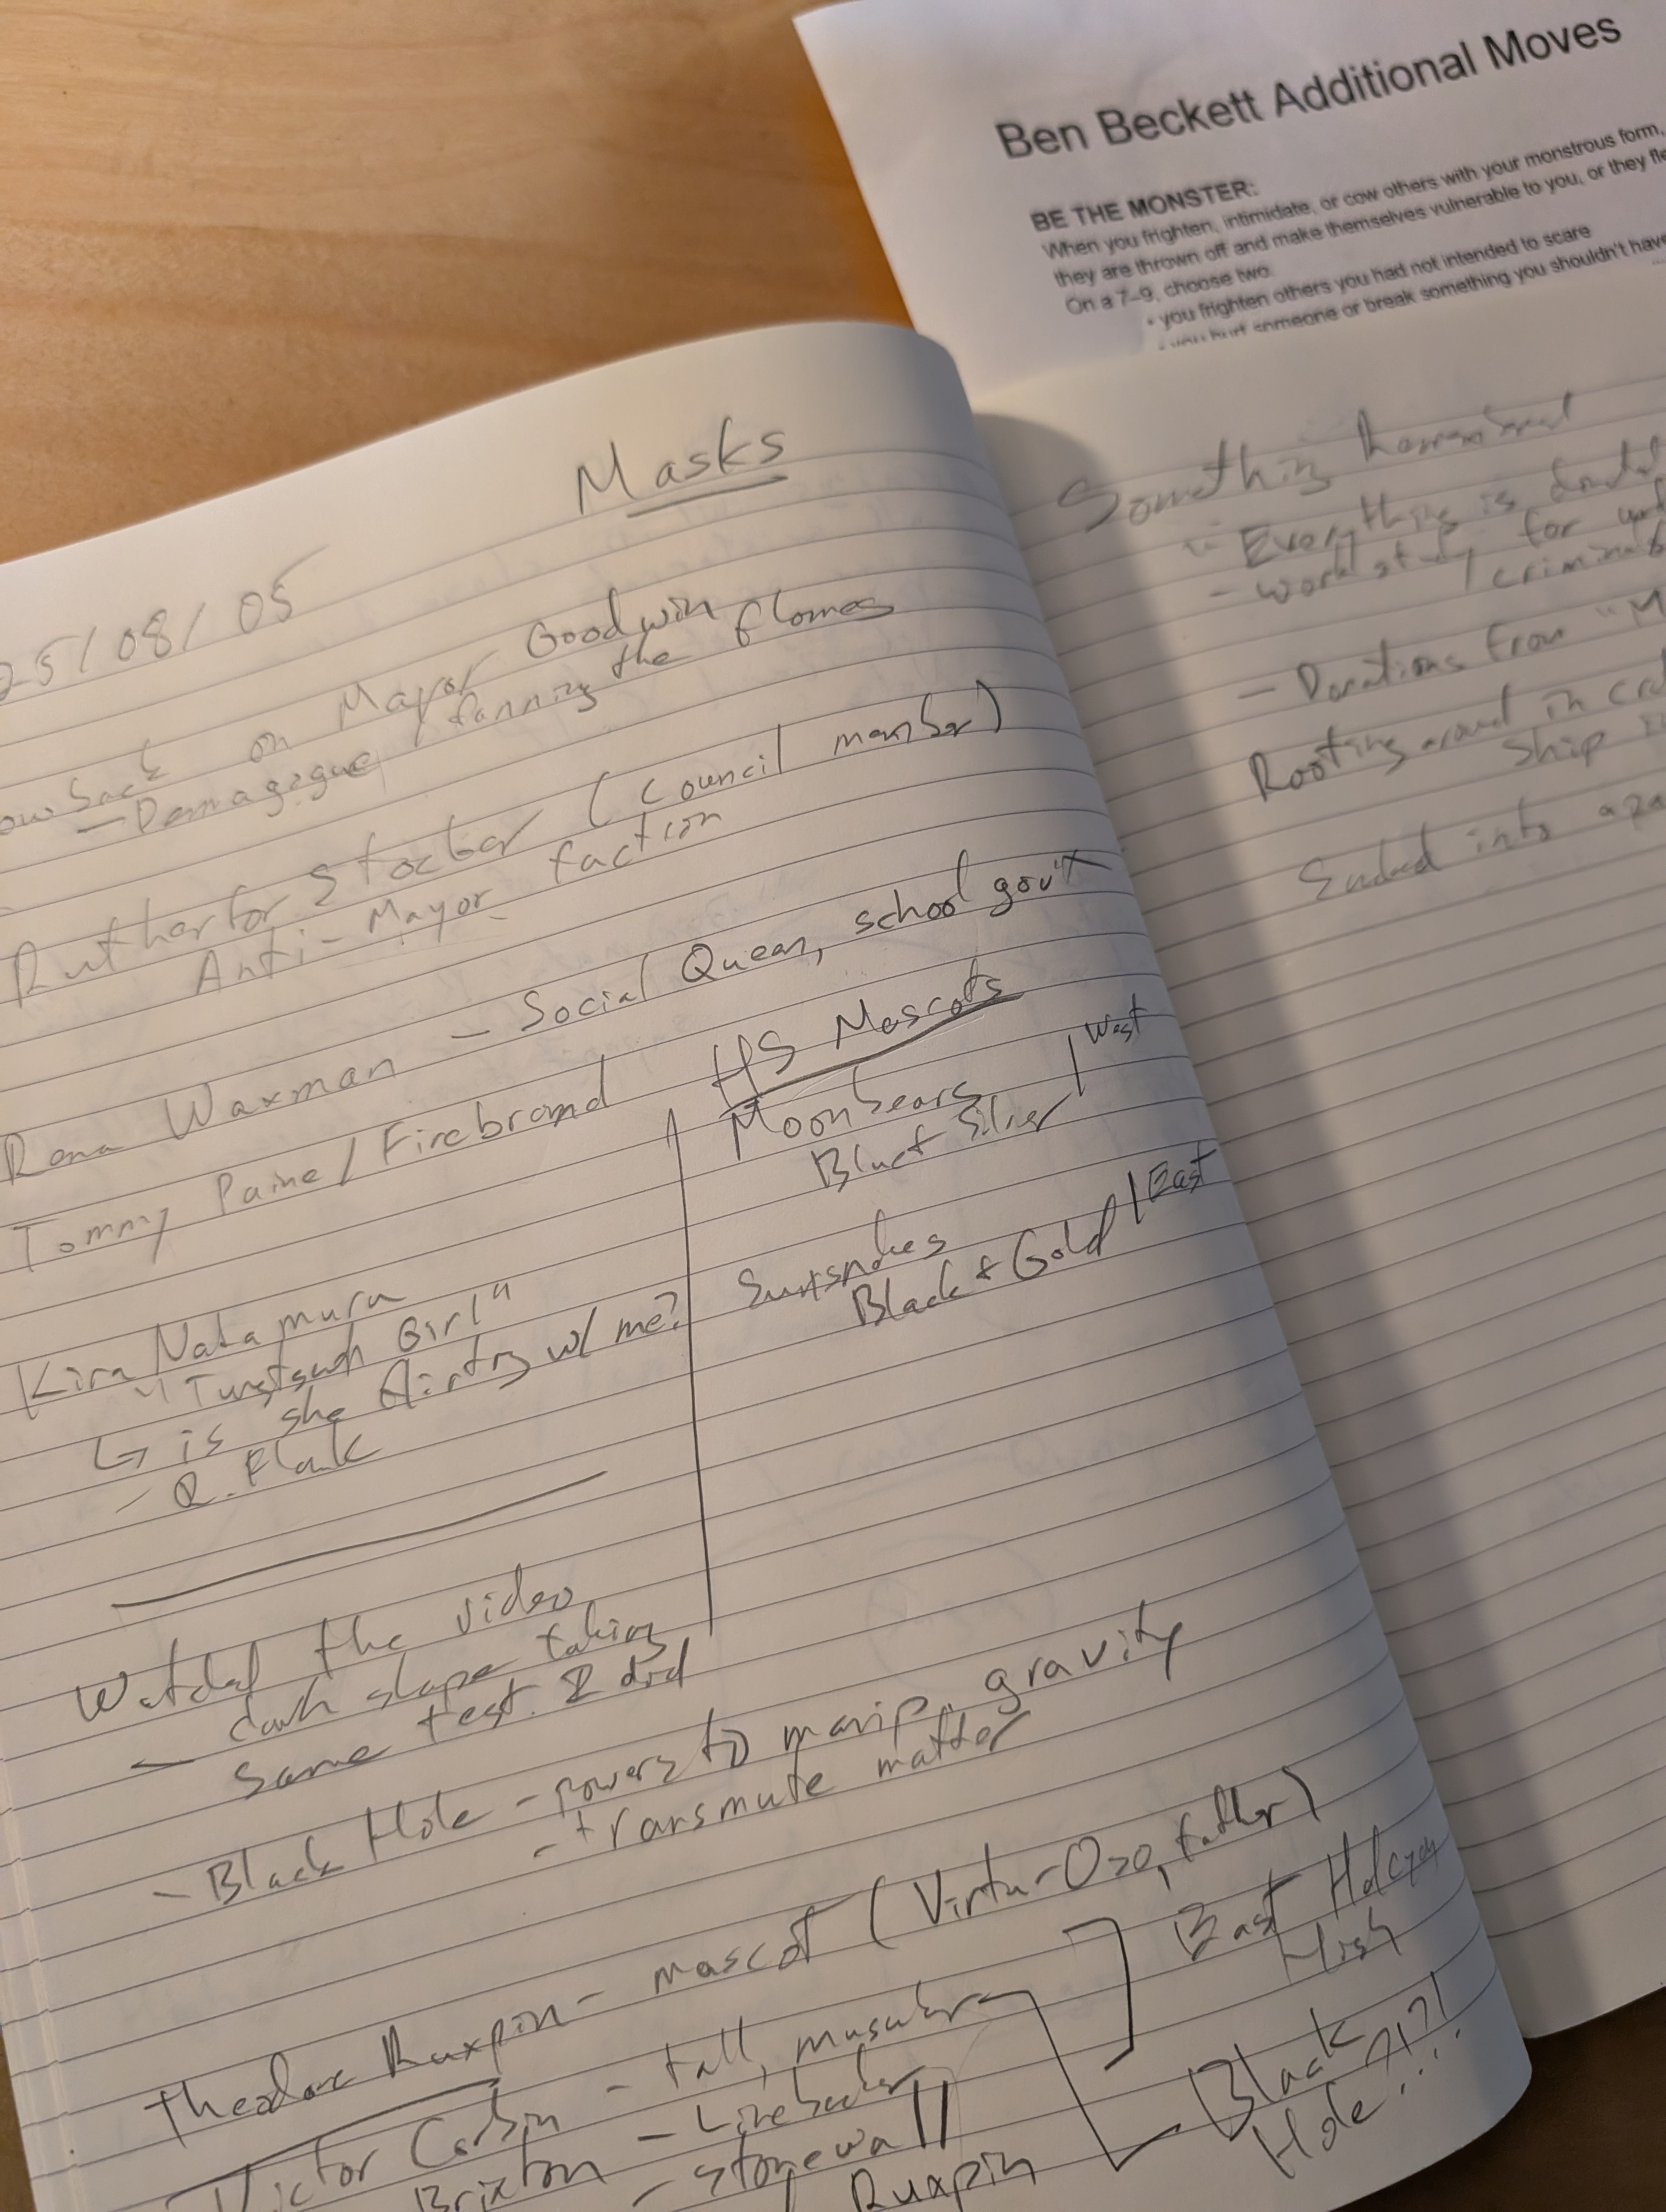 Ben Beckett Additional Moves
BE THE MONSTER:
When you frighten, intimidate, or cow others with your monstrous form,
they are thrown off and make themselves vulnerable to you, or they fle
On a 7–9, choose two.
• you frighten others you had not intended to scare
• you hurt someone or break something you shouldn't have
Masks
25/08/05
on Mayor Goodwin
— Demagogue / fanning the flames
Rutherfor Stocber (Council member)
Anti-Mayor faction
Rena Waxman — Social Queen, school gov't
Tommy Paine / Firebrand
Kira Natamura
Girl"
↳ is she flirting w/ me?
HS Mascots
Moonbears
Blue + Silver / West
Black + Gold / East
Watched the video
— taking
same test I did
— Black Hole — powers to manip. gravity
- transmute matter
Theodore Ruxpin — mascot (Virtu-Oso, father)
Victor Corbin - tall, muscular
Brixton — Linebacker
— Stonewall
Ruxpin
East Halcyon
High
Black
Hole?!?!
Something
- Everything is
- work study for
/ criminals
— Donations from "M
Rooting around in
ship
Ended into